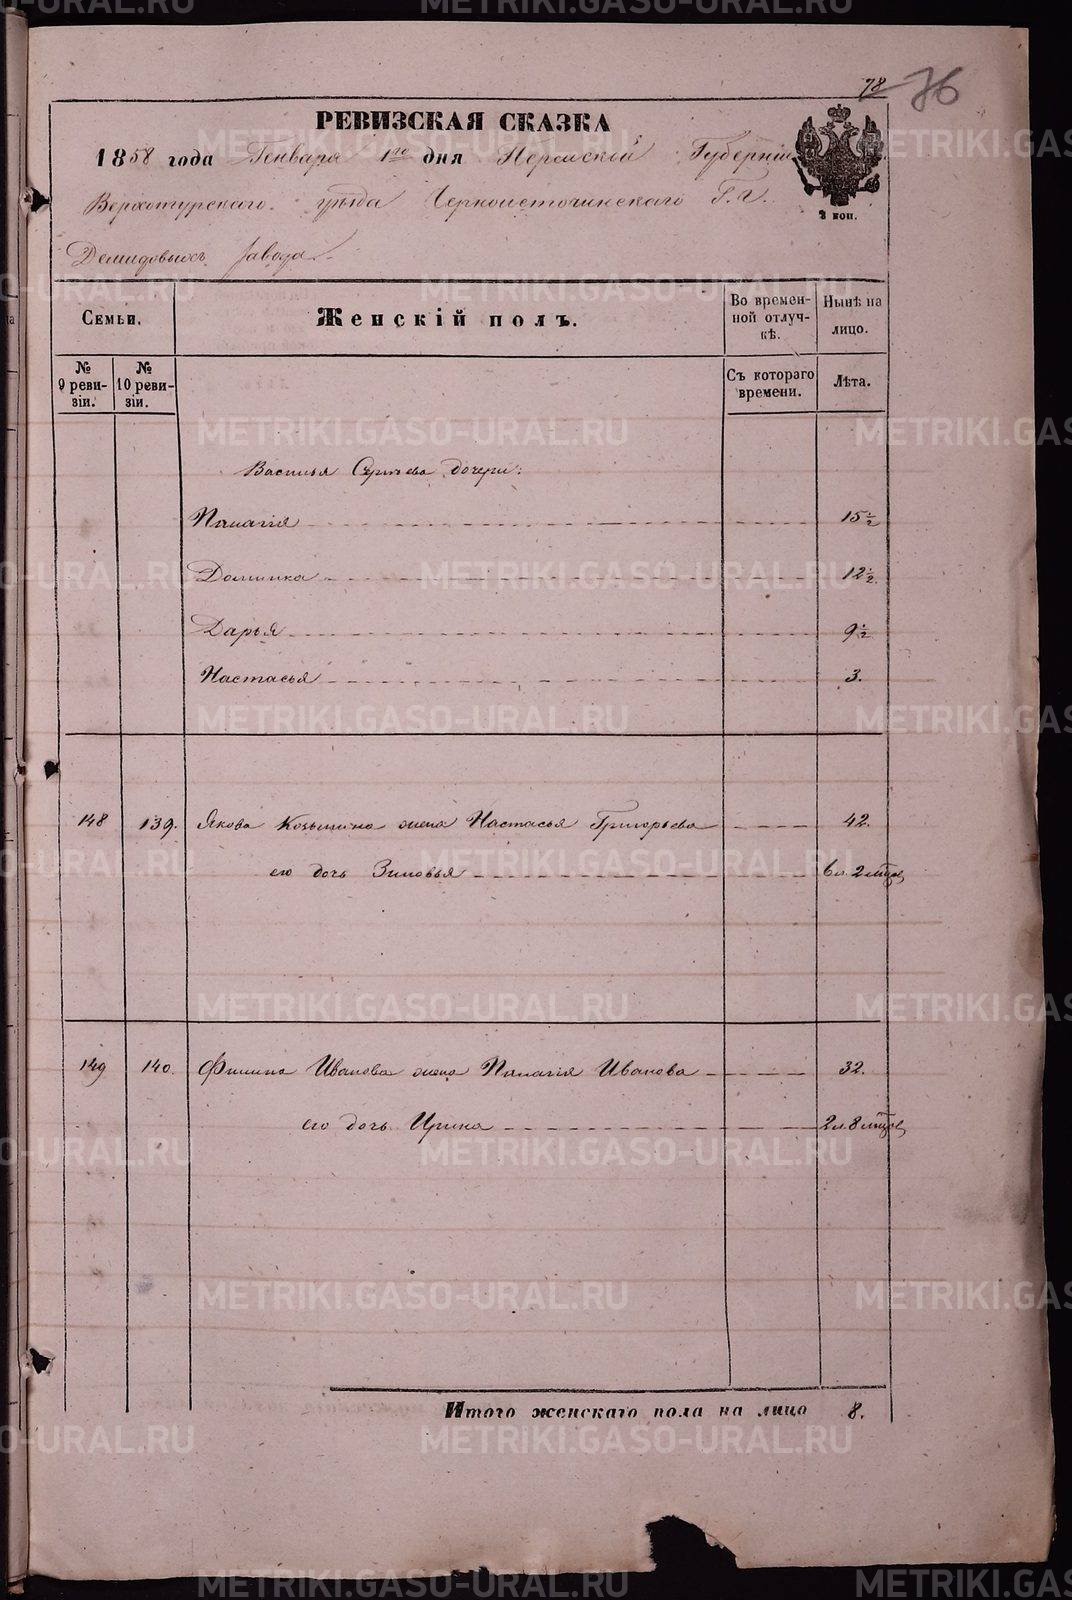 78 76
РЕВИЗСКАЯ СКАЗКА
1858 года Генваря 1го дня Пермской Губерніи
Верхотурскаго уѣзда Черноисточинскаго Г. г.
Демидовыхъ завода
2 коп.
Семьи.
Женскій полъ.
Во времен-
ной отлуч-
кѣ.
Нынѣ на
лицо.
№
9 реви-
зіи.
№
10 реви-
зіи.
Съ котораго
времени.
Лѣта.
Василья Сергѣева дочери:
Палагія 15 1/2
Домника 12 1/2
Дарья 9 1/2
Настасья 3.
148 139. Якова Козьмина жена Настасья Григорьева 42.
его дочь Зиновья 6 л. 2 мѣсе
149 140. Филипа Иванова жена Палагія Иванова 32.
его дочь Ирина 2 л. 8 мѣсе
Итого женскаго пола на лицо 8.
METRIKI.GASO-URAL.RU